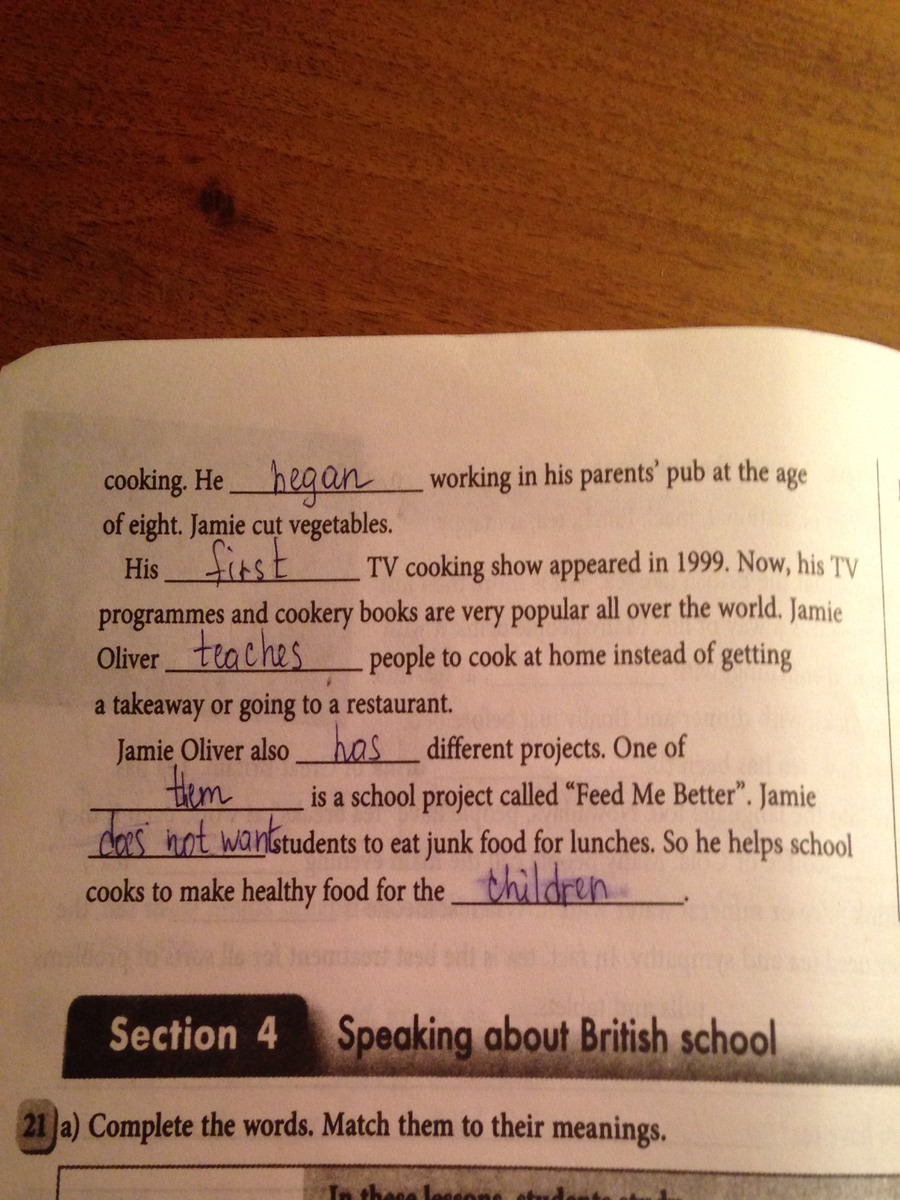 cooking. He began working in his parents' pub at the age
of eight. Jamie cut vegetables.
His first TV cooking show appeared in 1999. Now, his TV
programmes and cookery books are very popular all over the world. Jamie
Oliver teaches people to cook at home instead of getting
a takeaway or going to a restaurant.
Jamie Oliver also has different projects. One of
them is a school project called “Feed Me Better”. Jamie
does not want students to eat junk food for lunches. So he helps school
cooks to make healthy food for the children.
Section 4 Speaking about British school
21 a) Complete the words. Match them to their meanings.
In these lessons, students